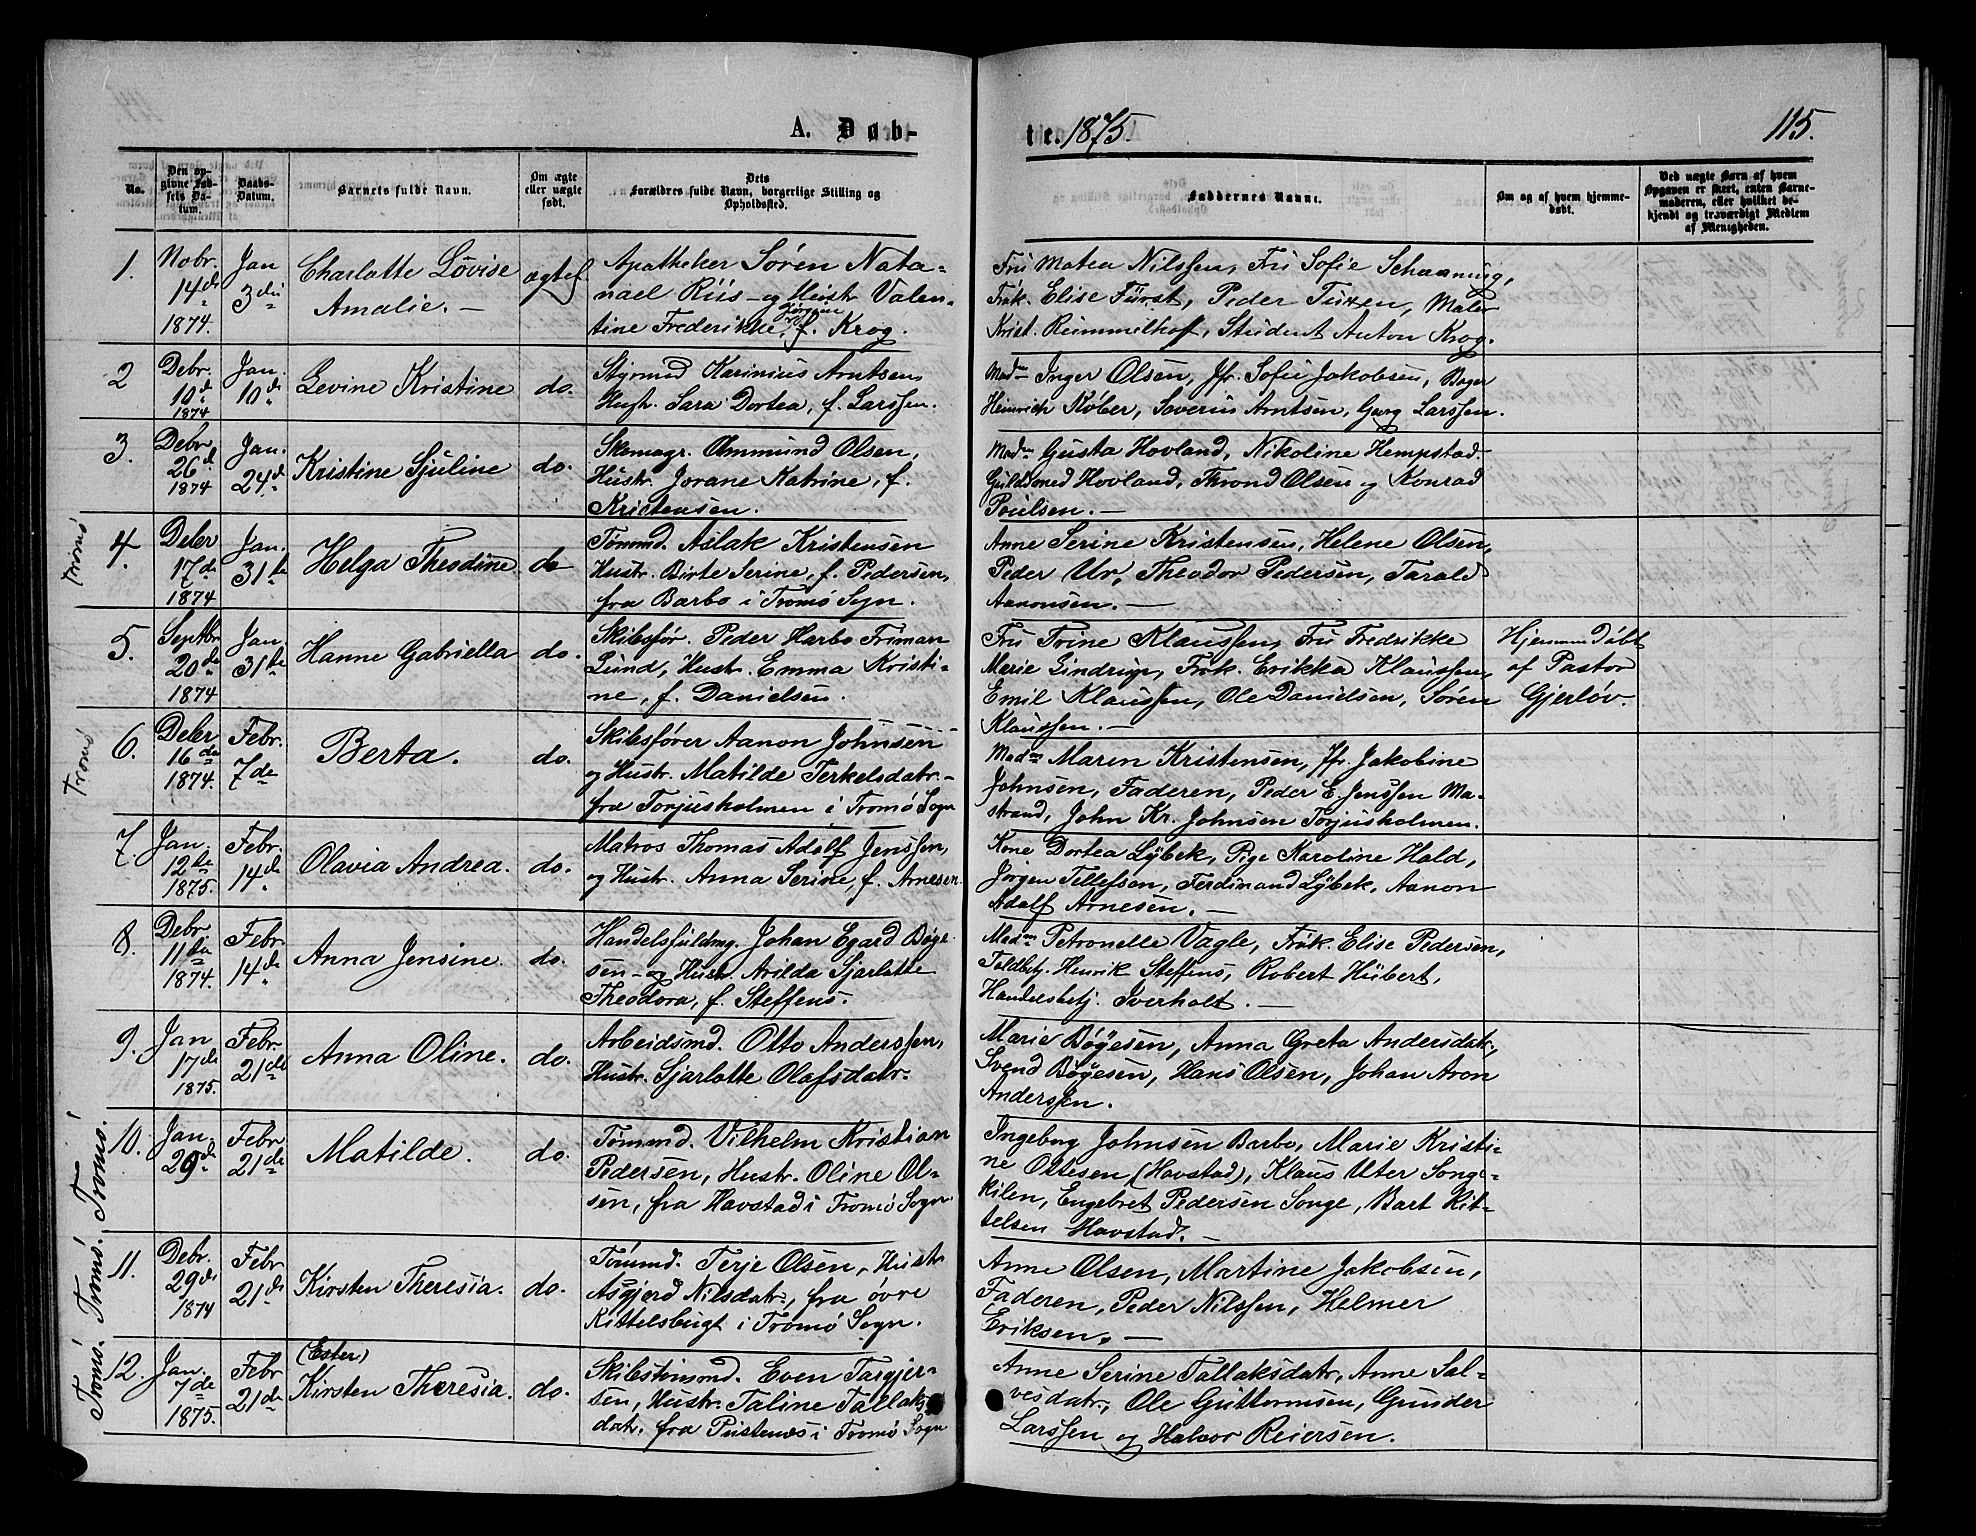 A. Døb-
te. 1875.
115.
No.
Den opgivne Fødsels Datum.
Daabs-Datum.
Barnets fulde Navn.
Om ægte eller uægte født.
Dets Forældres fulde Navn, borgerlige Stilling og Opholdssted.
Faddernes Navne.
Om og af hvem hjemmedøbt.
Ved uægte Børn af hvem Opgaven er skeet, enten Barnemoderen, eller hvilket bekjendt og troværdigt Medlem af Menigheden.
1. Nobr. 14de 1874. Jan 3die Charlotte Lovise Amalie. — ægtef
Apotheker Sören Nata-
nael Riis — og Hustr Valen-
tine Frederikke Jörgine, f. Krog.
Fru Matea Nilssen, Fru Sofie Schanning,
Frøk. Elise Fürst, Peder Tuxen, Maler
Krist. Rummelhof, Student Anton Krog.
2 Debr. 10de 1874 Jan. 10de Levine Kristine do.
Styrmd Karinius Arntsen,
Hustr. Sara Dortea, f. Larssen.
Madm Inger Olsen, Jfr. Sofie Jakobsen, Bager
Heinrich Køber, Soverus Arntsen, Georg Larssen.
3. Debr. 26de 1874 Jan. 24de Kristine Sjuline do.
Skomagr. Ommund Olsen,
Hustr. Jorane Katrine, f.
Kristensen.
Madm Gusta Hovland, Nikoline Hempstad
Guldsmed Hovland, Thrond Olsen og Konrad
Poulsen. —
Tromö
4. Debr 17de 1874 Jan. 31te Helga Theodine do
Tømmd. Aslak Kristensen
Hustr. Birte Serine, f. Pedersen,
fra Barbo i Tromö Sogn.
Anne Serine Kristensen, Helene Olsen,
Peder Ur, Theodor Pedersen, Tarald
Aanonsen. —
5. Septbr 20de 1874 Jan. 31te Hanne Gabriella do.
Skibsfør. Peder Harbo Friman
Lund, Hustr. Emma Kristi-
ne, f. Danielsen.
Fru Trine Klaussen, Fru Fredrikke
Marie Lindrup, Frøk. Erikka Klaussen,
Emil Klaussen, Ole Danielsen, Sören
Klaussen. —
Hjemmedöbt
af Pastor
Gjerlöv.
Tromö
6. Debr 16de 1874. Febr. 7de Berta. do.
Skibsfører Aanon Johnsen
og Hustr. Matilde Terkelsdatr. —
fra Torjusholmen i Tromö Sogn
Madm Maren Kristensen, Jfr. Jakobine
Johnsen, Faderen, Peder E. Jenssen Ma-
strand, John Kr. Johnsen Torjusholmen.
7. Jan. 12te 1875. Febr. 14de Olavia Andrea. do.
Matros Thomas Adolf Jenssen,
og Hustr. Anna Serine, f. Arnesen.
Kone Dortea Lybek, Pige Karoline Hald,
Jörgen Tellefsen, Ferdinand Lybek, Aanon
Adolf Arnesen. —
8. Debr. 11te 1874. Febr. 14de Anna Jensine. do.
Handelsfuldmg. Johan Egard Bøge-
sen — og Hustr. Arilda Sjarlotte
Theodora, f. Steffens.
Madm Petronelle Vagle, Frøk. Elise Pedersen,
Toldbetj. Henrik Steffens, Robert Hübert,
Handelsbetj. Sverholt. —
9. Jan 17de 1875. Febr. 21de Anna Oline. do.
Arbeidsmd. Otto Anderssen,
Hustr. Sjarlotte Olafsdatr.
Marie Bøgesen, Anna Greta Andersdatr.,
Svend Bøgesen, Hans Olsen, Johan Aron
Anderssen.
Tromö!
10. Jan 29de Febr 21de Matilde. do.
Tömmd. Vilhelm Kristian
Pedersen, Hustr. Oline Ol-
sen, fra Havstad i Tromö Sogn.
Ingeborg Johnsen Barbo, Marie Kristi-
ne Ottesen (Havstad), Klaus Uter Songe-
kilen, Engebret Pedersen Songe, Bart Kit-
telsen Havstad. —
Tromö.
11. Debr. 29de 1874 Febr 21de Kirsten Theresia. do.
Tömmd. Terje Olsen, Hustr
Asgjerd Nilsdatr., fra øvre
Kittelsbugt i Tromö Sogn.
Anne Olsen, Martine Jakobsen,
Faderen, Peder Nilssen, Helmer
Eriksen. —
Tromö.
12. Jan. 7de 1875. Febr 21de (Ester) Kirsten Theresia. do.
Skibstömmd. Even Targjer-
sen, Hustr. Taline Tallaks-
datr. fra Pusnes i Tromö Sogn
Anne Serine Tallaksdatr, Anne Sal-
vesdatr., Ole Guttormsen, Gunder
Larssen og Halvor Reiersen.